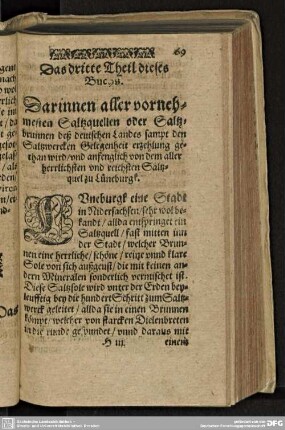 69
Das dritte Theil dieses
Buchs.
Darinnen aller vorneh-
mesten Saltzquellen oder Saltz-
brunnen deß deutschen Landes sampt den
Saltzwercken Gelegenheit erzehlung ge-
than wird/ vnd anfenglich von dem aller
herrlichsten vnd reichsten Saltz-
quel zu Lüneburgk.
LVneburgk eine Stadt
in Nidersachsen sehr wol be-
kandt/ allda entspringet ein
Saltzquell/ fast mitten inn
der Stadt/ welcher Brun-
nen eine herrliche/ schöne/ reine vnnd klare
Sole von sich außgeust/ die mit keinen an-
dern Mineralen sonderlich vermischet ist.
Diese Saltzsole wird vnter der Erden bey-
leufftig bey die hundert Schritt zum Saltz-
werck geleitet/ allda sie in einen Brunnen
kömpt/ welcher von starcken Dielen breten
in die runde gespündet/ vnnd daraus mit
H iij.
einem